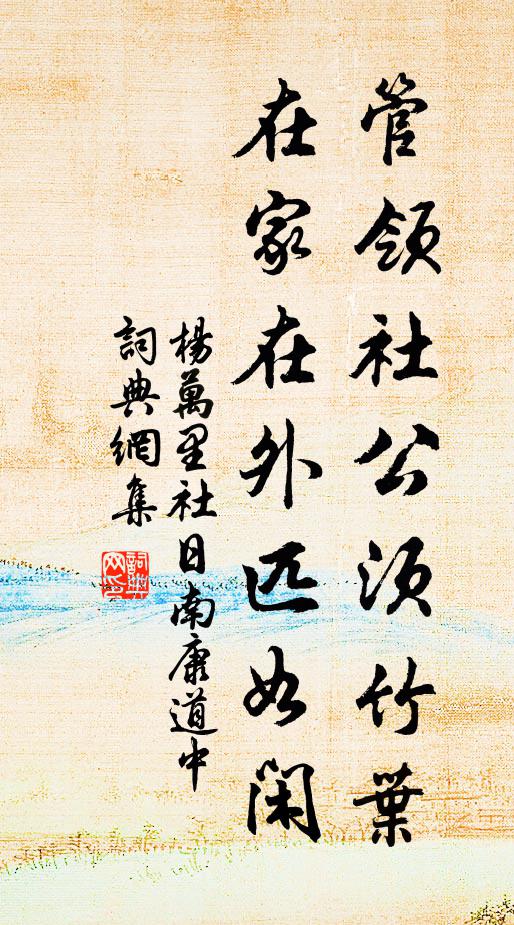 管領社公須竹葉
在家在外匹如閑
楊萬里社日南康道中
詞典網集